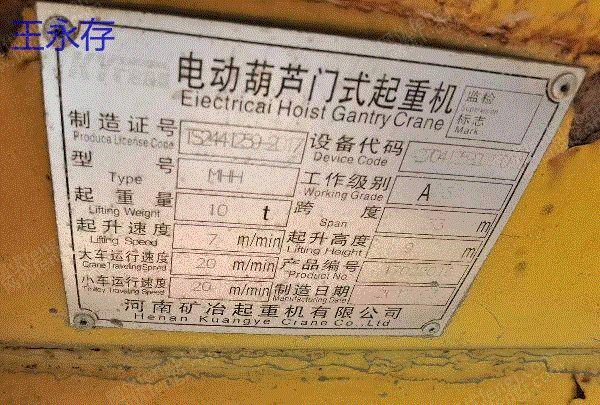 王永存
电动葫芦门式起重机
Electrical Hoist Gantry Crane
监检
标志
Mark
制造证号
Produce License Code
TS2441259-2017
设备代码
Device Code
型 号
Type
MHH
工作级别
Working Grade
A
起重量
Lifting Weight
10 t
跨 度
Span
m
起升速度
Lifting Speed
7 m/min
起升高度
Lifting Height
9 m
大车运行速度
Crane Traveling Speed
20 m/min
产品编号
Product No
小车运行速度
Trolley Traveling Speed
20 m/min
制造日期
Manufacturing Date
河南矿冶起重机有限公司
Henan Kuangye Crane Co., Ltd